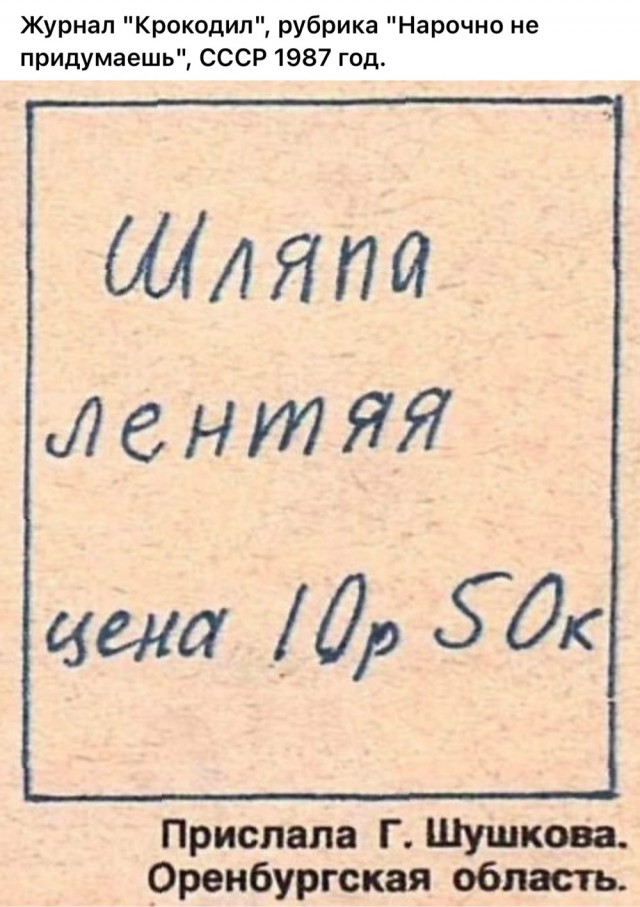 Журнал "Крокодил", рубрика "Нарочно не
придумаешь", СССР 1987 год.
Шляпа
лентяя
цена 10р 50к
Прислала Г. Шушкова.
Оренбургская область.